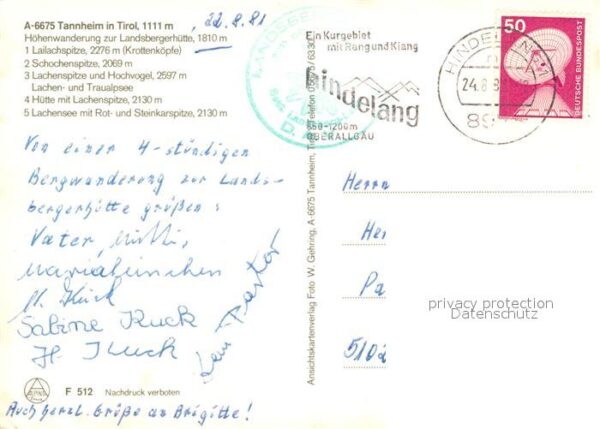 A-6675 Tannheim in Tirol, 1111 m
22.8.81
Höhenwanderung zur Landsbergerhütte, 1810 m
1 Lailachspitze, 2276 m (Krottenköpfe)
2 Schochenspitze, 2069 m
3 Lachenspitze und Hochvogel, 2597 m
Lachen- und Traualpsee
4 Hütte mit Lachenspitze, 2130 m
5 Lachensee mit Rot- und Steinkarspitze, 2130 m
Von einer 4-stündigen
Bergwanderung zur Lands-
bergerhütte grüßen:
Vater, Mutti,
Mariahinchen
Sabine Kuck
H. Kuck
Pastor
F 512 Nachdruck verboten
Auch herzl. Grüße an Brigitte!
Ansichtskartenverlag Foto W. Gehring, A-6675 Tannheim, Tirol, Telefon 05675/6330
LANDSBERG
Ein Kurgebiet
mit Rang und Klang
hindelang
850-1200m
OBERALLGÄU
HINDELANG 1
24.8.8
89
50
DEUTSCHE BUNDESPOST
Herrn
Hei
Pa
5102
privacy protection
Datenschutz